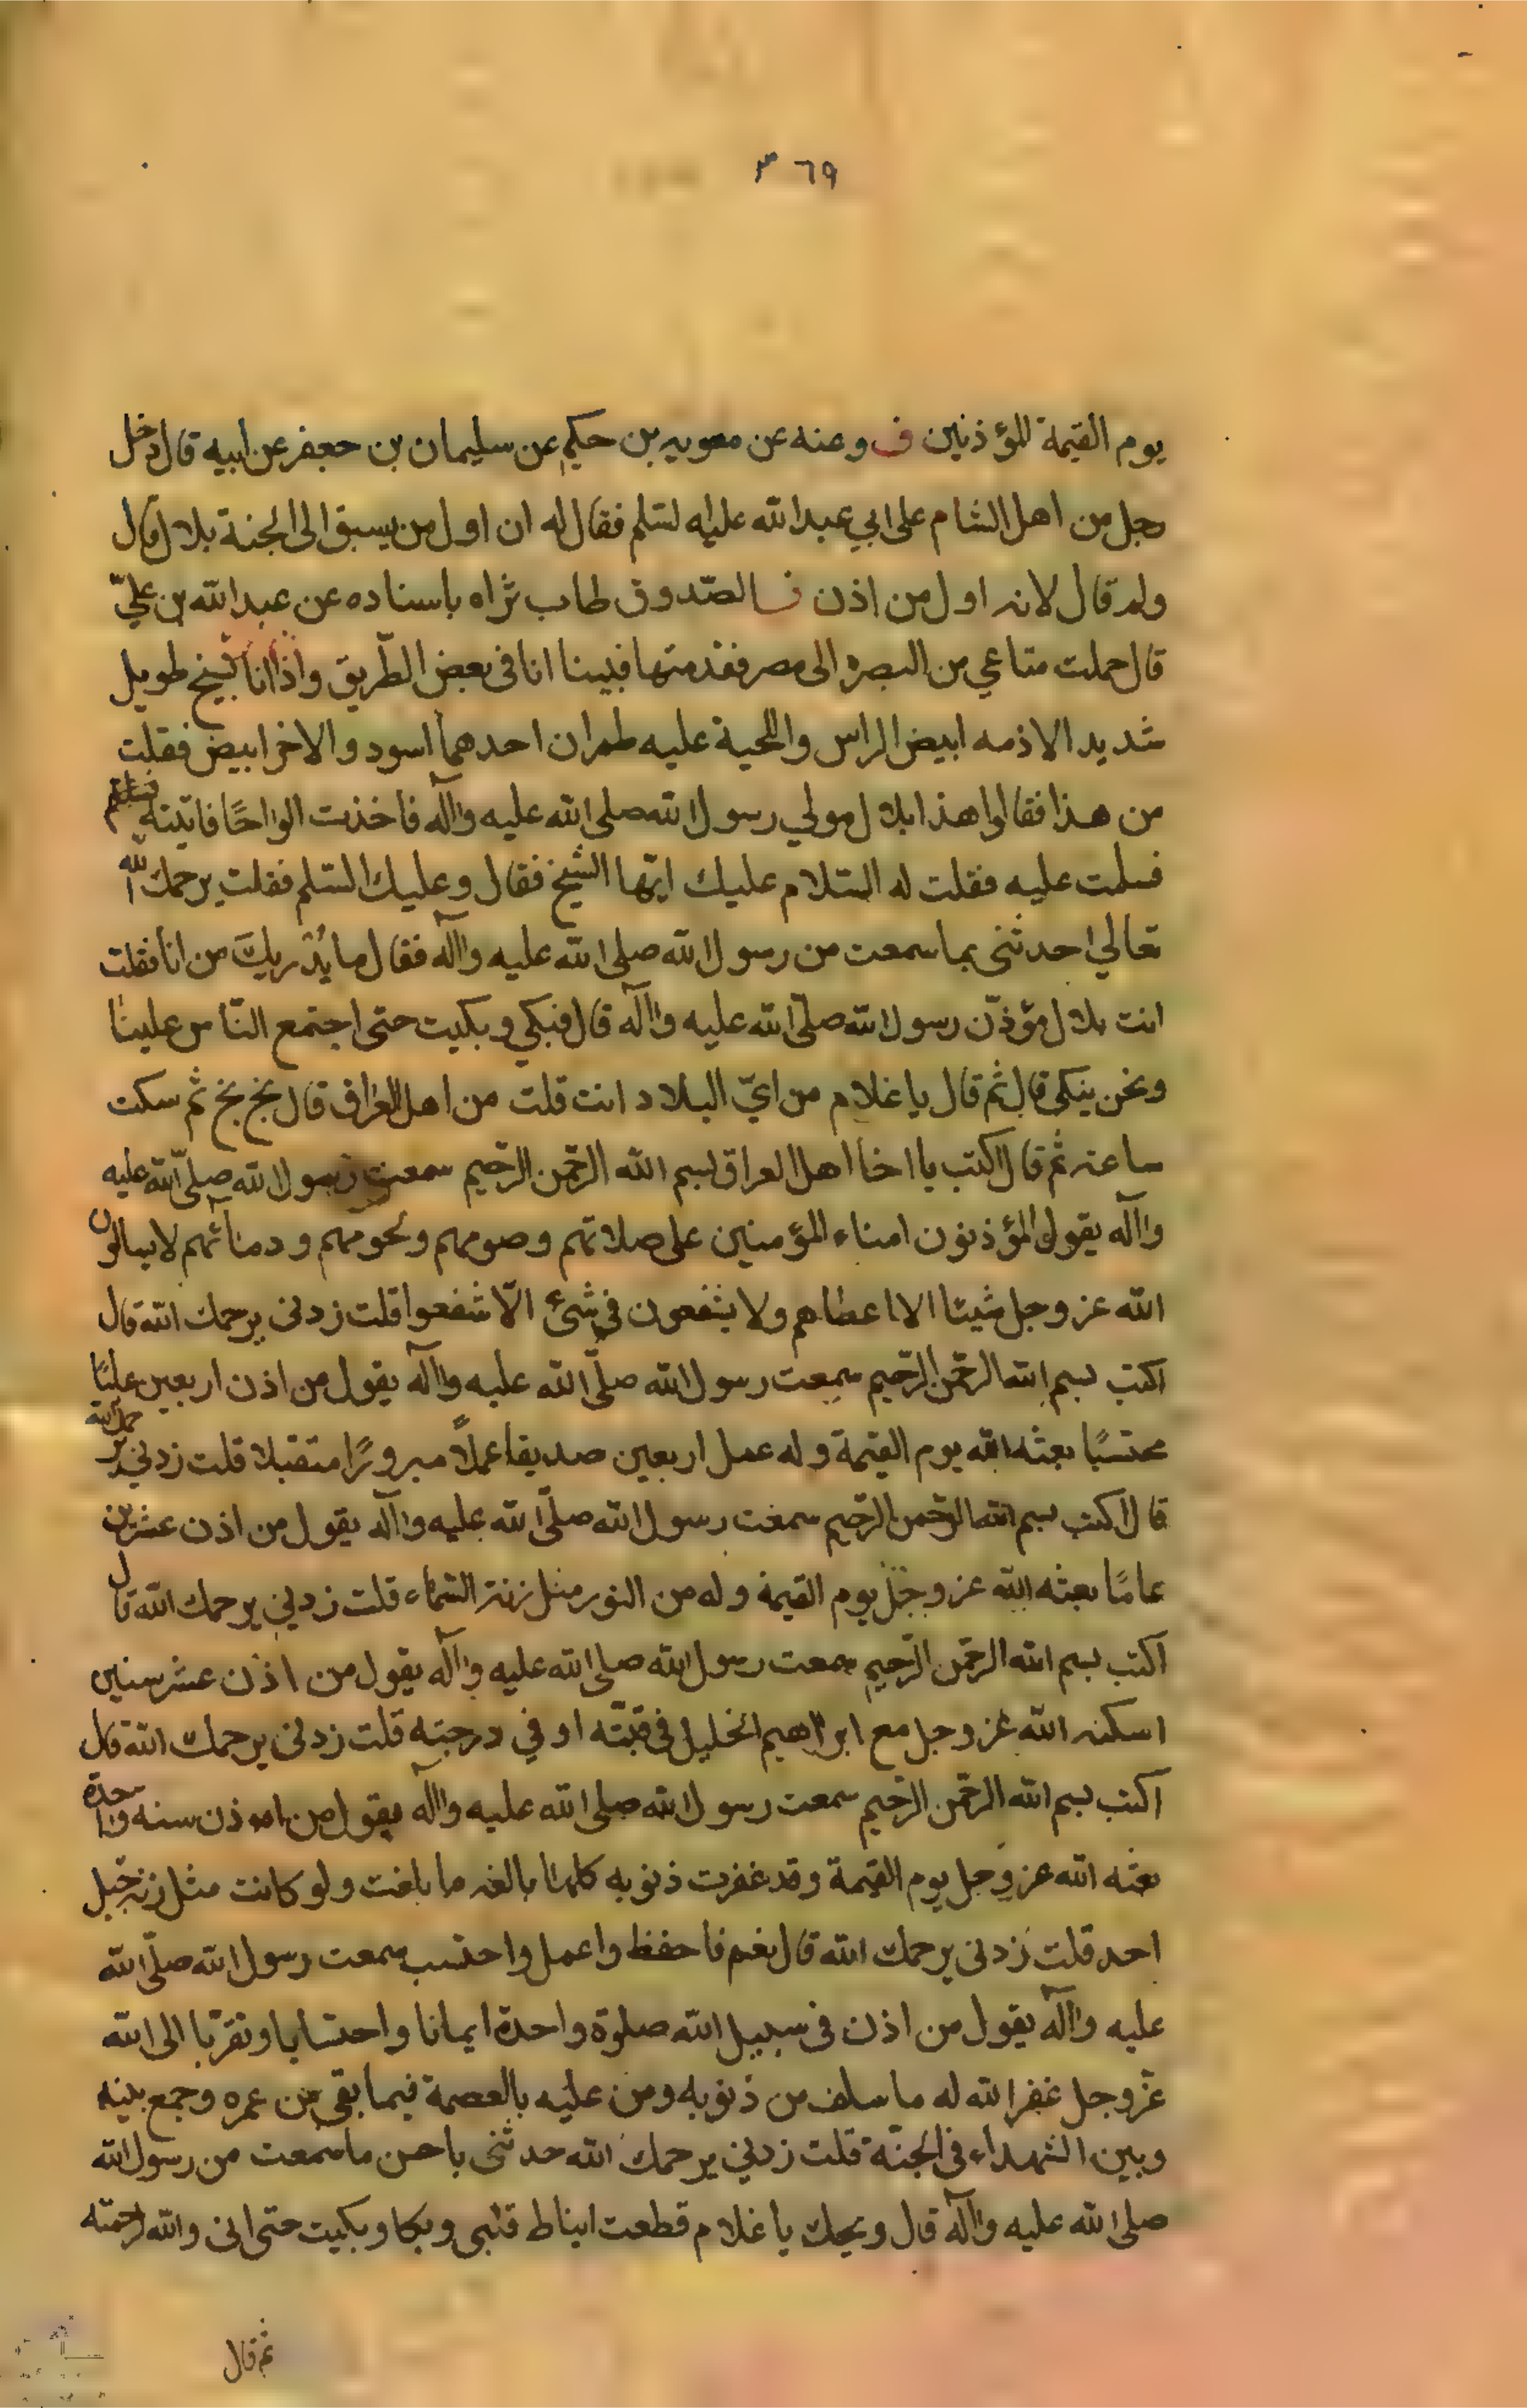 ٣٦٩
يوم القيمة للمؤذنين ف وعنه عن معويه بن حكيم عن سليمان بن جعفر عن ابيه قال دخل
رجل من اهل الشام على ابي عبدالله عليه لسّلم فقال له ان اول من يسبق الى الجنة بلال قال
ولم قال لانه اول من اذن الصّدوق طاب ثراه باسناده عن عبدالله بن عليّ
قال حملت متاعي من البصره الى مصر فقدمتها فبينا انا فى بعض الطّريق واذا انا بشيخ طويل
شديد الاذمه ابيض الراس واللحية عليه طمران احدهما اسود والاخر ابيض فقلت
من هذا فقالوا هذا بلال مولي رسول الله صلى الله عليه وآله فاخذت الواحًا فاتيته
فسلمت عليه فقلت له السّلام عليك ايّها الشيخ فقال وعليك السّلم فقلت يرحمك الله
تعالي احدثنى بما سمعت من رسول الله صلى الله عليه وآله فقال ما يُدريكَ من انا فقلت
انت بلال مؤذّن رسول الله صلّى الله عليه وآله قال فبكي وبكيت حتى اجتمع النّاس علينا
ونحن ينكى قال ثم قال يا غلام من ايّ البلاد انت قلت من اهل العراق قال بخ بخ ثم سكت
ساعته ثم قال اكتب يا اخا اهل العراق بسم الله الرحمن الرحيم سمعت رسول الله صلّى الله عليه
وآله يقول المؤذنون امناء المؤمنين على صلاتهم وصومهم ولحومهم ودمائهم لا يسالون
الله عز وجل شيئا الا اعطاهم ولا يشفعون في شئ الّا شفعوا قلت زدنى يرحمك الله قال
اكتب بسم الله الرحمن الرحيم سمعت رسول الله صلّى الله عليه وآله يقول من اذن اربعين عامًا
محتسبًا بعثه الله يوم القيمة وله عمل اربعين صديقا عملًا مبرورًا متقبلا قلت زدني يرحمك الله
قال اكتب بسم الله الرحمن الرحيم سمعت رسول الله صلّى الله عليه وآله يقول من اذن عشرين
عامًا بعثه الله عز وجل يوم القيمة وله من النور مثل زنة السّماء قلت زدني يرحمك الله قال
اكتب بسم الله الرحمن الرّحيم سمعت رسول الله صلى الله عليه وآله يقول من اذن عشر سنين
اسكنه الله عز وجل مع ابراهيم الخليل فى قبّته او في درجته قلت زدنى يرحمك الله قال
اكتب بسم الله الرحمن الرحيم سمعت رسول الله صلى الله عليه وآله يقول من اذن سنه واحدة
بعثه الله عز وجل يوم القيمة وقد غفرت ذنوبه كلها بالغه ما بلغت ولو كانت مثل زنه جبل
احد قلت زدنى يرحمك الله قال نعم فاحفظ واعمل واحتسب سمعت رسول الله صلّى الله
عليه وآله يقول من اذن فى سبيل الله صلوة واحدة ايمانا واحتسابا وتقرّبا الى الله
عزّ وجل غفر الله له ما سلف من ذنوبه ومن عليه بالعصمة فيما بقى من عمره وجمع بينه
وبين الشهداء فى الجنّة قلت زدني يرحمك الله حدثنى باحسن ما سمعت من رسول الله
صلى الله عليه وآله قال ويحك يا غلام قطعت انياط قلبى وبكا وبكيت حتى انى والله لرحمته
ثم قال